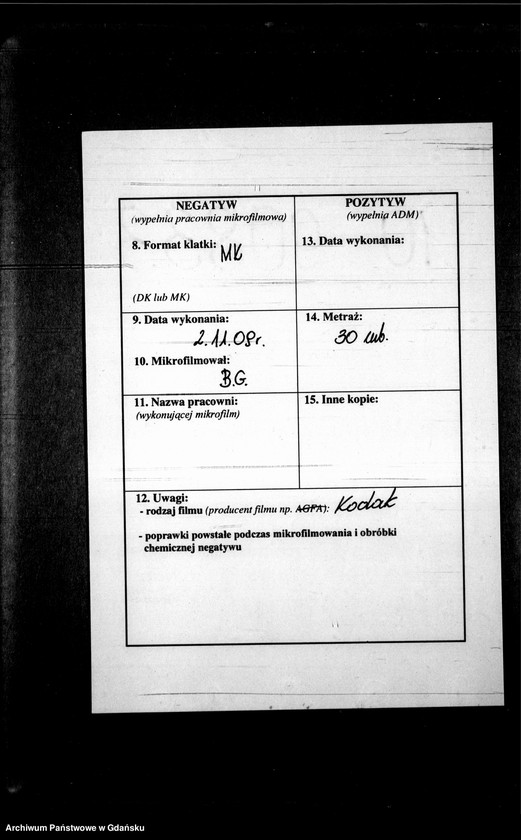 NEGATYW
(wypełnia pracownia mikrofilmowa)
8. Format klatki: MK
(DK lub MK)
9. Data wykonania:
2.11.08r.
10. Mikrofilmował:
B.G.
11. Nazwa pracowni:
(wykonującej mikrofilm)
POZYTYW
(wypełnia ADM)
13. Data wykonania:
14. Metraż:
30 mb.
15. Inne kopie:
12. Uwagi:
- rodzaj filmu (producent filmu np. AGFA): Kodak
- poprawki powstałe podczas mikrofilmowania i obróbki
chemicznej negatywu
Archiwum Państwowe w Gdańsku